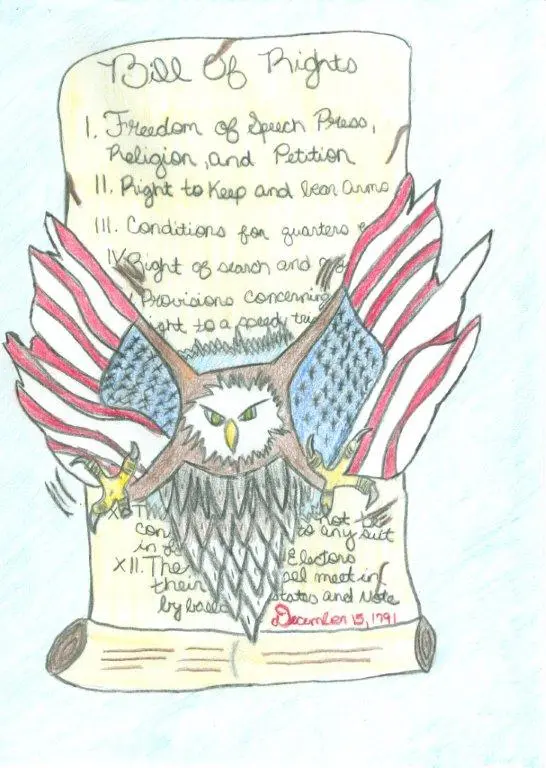 Bill Of Rights
I. Freedom of Speech Press,
Religion, and Petition
II. Right to Keep and bear arms
III. Conditions for quarters
IV Right of search and
Provisions concerning
ght to a speedy tri
XI. The not be
con to any suit
in
XII. The Electors
their meet in
by ball states and vote
December 15, 1791